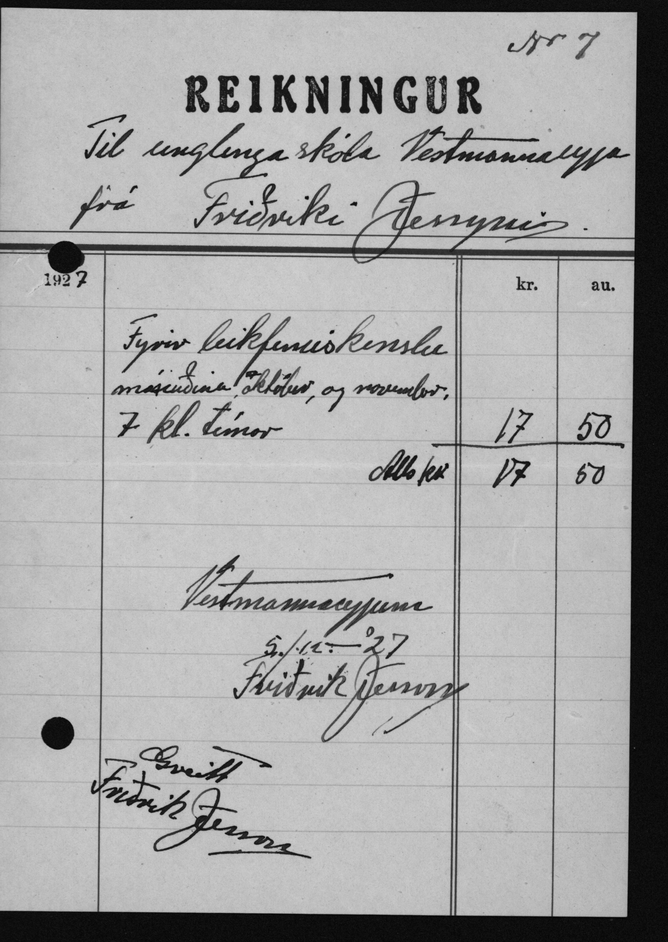 Nr 7
REIKNINGUR
Til unglingaskóla Vestmannaeyja
frá Friðriki Jessyni.
1927
kr. au.
Fyrir leikfimiskenslu
mánuðina, október, og november,
7 kl. tímar 17 50
Alls kr 17 50
Vestmannaeyjum
5./12.— '27
Friðrik Jesson
Greitt
Friðrik Jesson